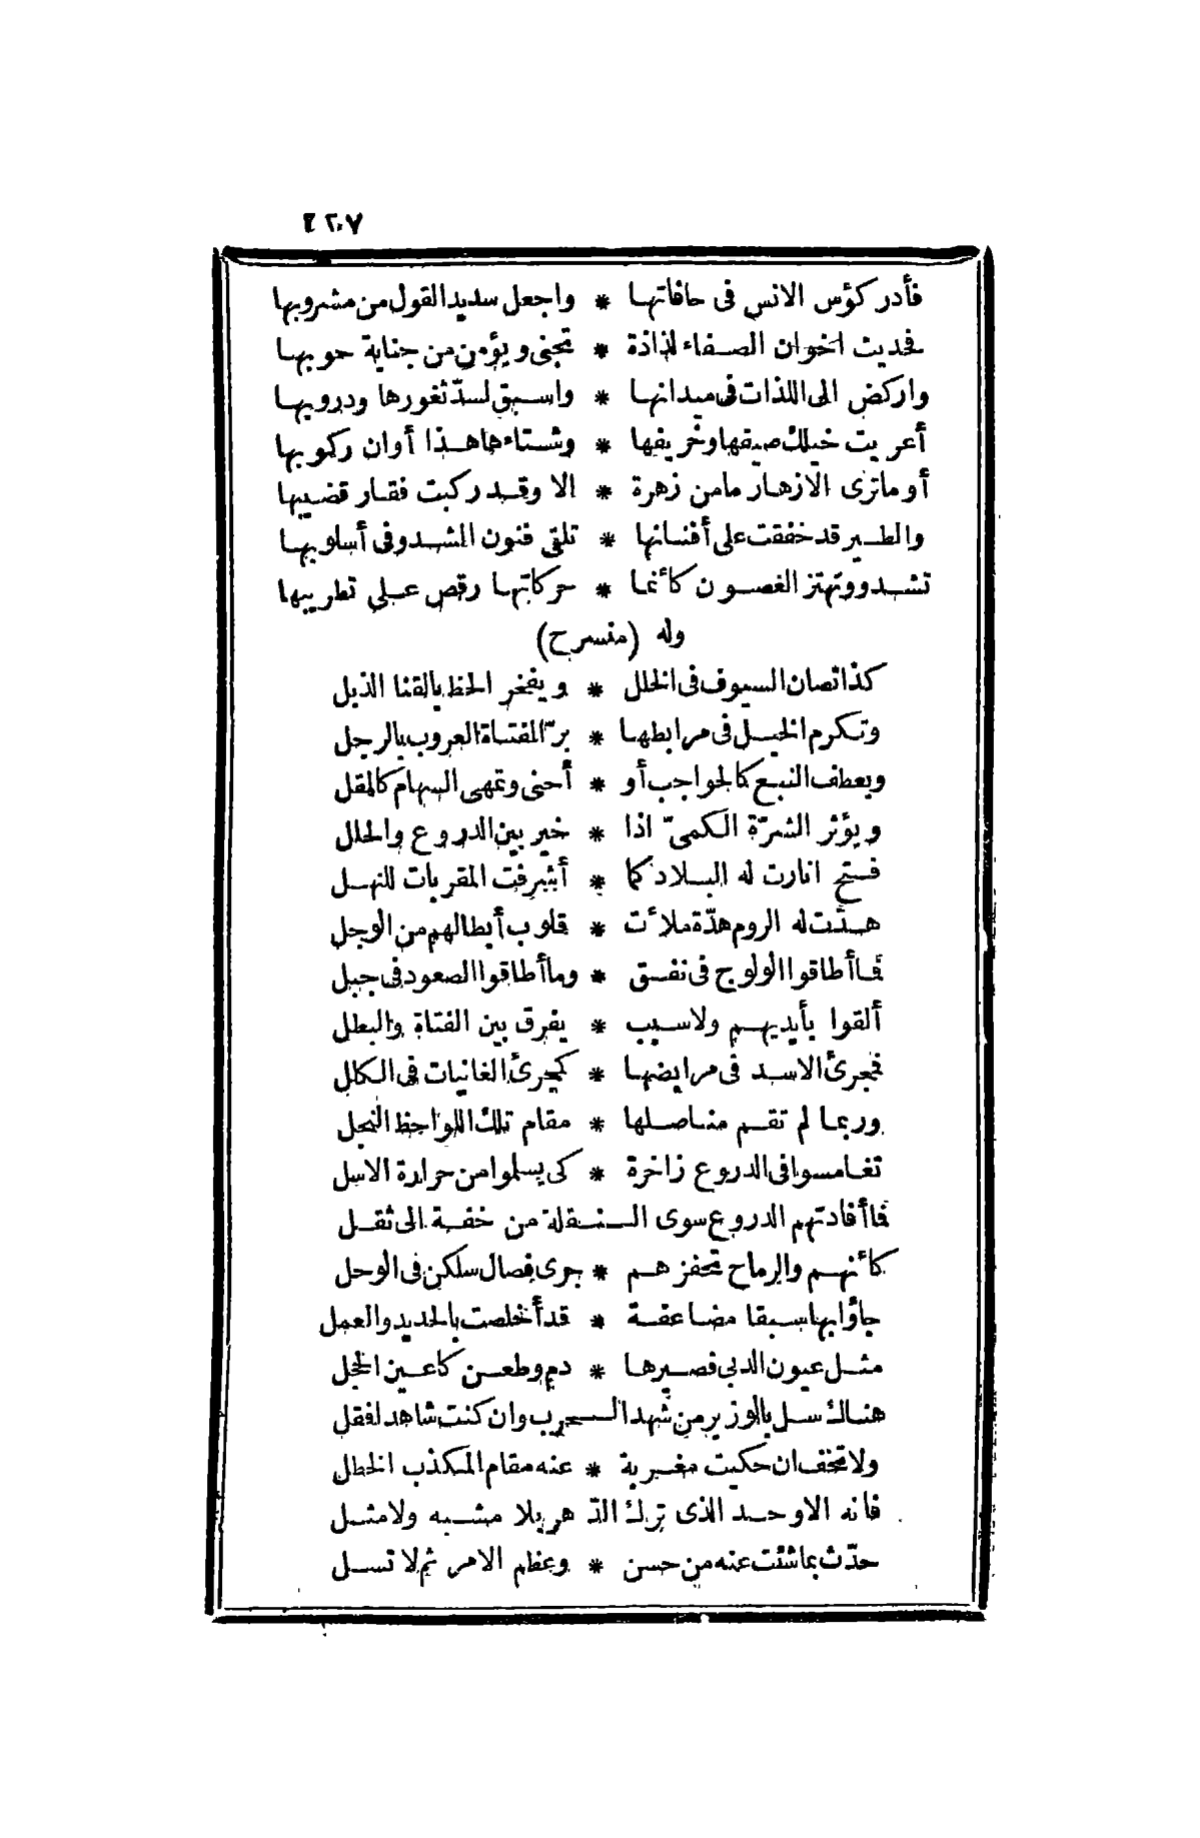 ٤٢٠٧
فأدر كؤس الانس فى حافاتها * واجعل سديد القول من مشروبها
فحديث اخوان الصفاء لذاذة * تجنى ويؤمن من جناية حوبها
واركض الى اللذات فى ميدانها * واسبق لسدّ ثغورها ودروبها
أعريت خيلك صيفها وخريفها * وشتاءها هذا أوان ركوبها
أو ماترى الازهار مامن زهرة * الا وقد ركبت فقار قضيبها
والطير قد خفقت على أفنانها * تلقى فنون الشدو فى أسلوبها
تشدو وتهتز الغصون كأنما * حركاتها رقص على تطريبها
وله (منسرح)
كذا تصان السيوف فى الخلل * ويفخر الحظ بالقنا الذبل
وتكرم الخيل فى مرابطها * برّ الفتاة العروب بالرجل
ويعطف النبع كالحواجب أو * أحنى وتمهى السهام كالمقل
ويؤثر النثرة الكمىّ اذا * خير بين الدروع والحلل
فتح انارت له البلاد كما * أشرفت المقربات للنهل
هدّت له الروم هدّة ملأت * قلوب أبطالهم من الوجل
فما أطاقوا الولوج فى نفق * وما أطاقوا الصعود فى جبل
ألقوا بأيديهم ولا سبب * يفرق بين الفتاة والبطل
فجرئ الاسد فى مرابضها * كجرئ الغانيات فى الكلل
وربما لم تقم مناصلها * مقام تلك اللواحظ النجل
تغامسوا فى الدروع زاخرة * كى يسلموا من حرارة الاسل
فما أفادتهم الدروع سوى الـنـقلة من خفة الى ثقل
كأنهم والرماح تحفزهم * جرى فصال سلكن فى الوحل
جاؤا بها سبقا مضاعفة * قد أخلصت بالحديد والعمل
مثل عيون الدبى فصيرها * دم وطعن كأعين الحجل
هناك سل بالوزير من شهد الـحرب وان كنت شاهدا فقل
ولا تخف ان حكيت مغربة * عنه مقام المكذب الخطل
فانه الاوحد الذى ترك الدّ هر بلا مشبه ولا مثل
حدّث بما شئت عنه من حسن * وعظم الامر ثم لا تسل